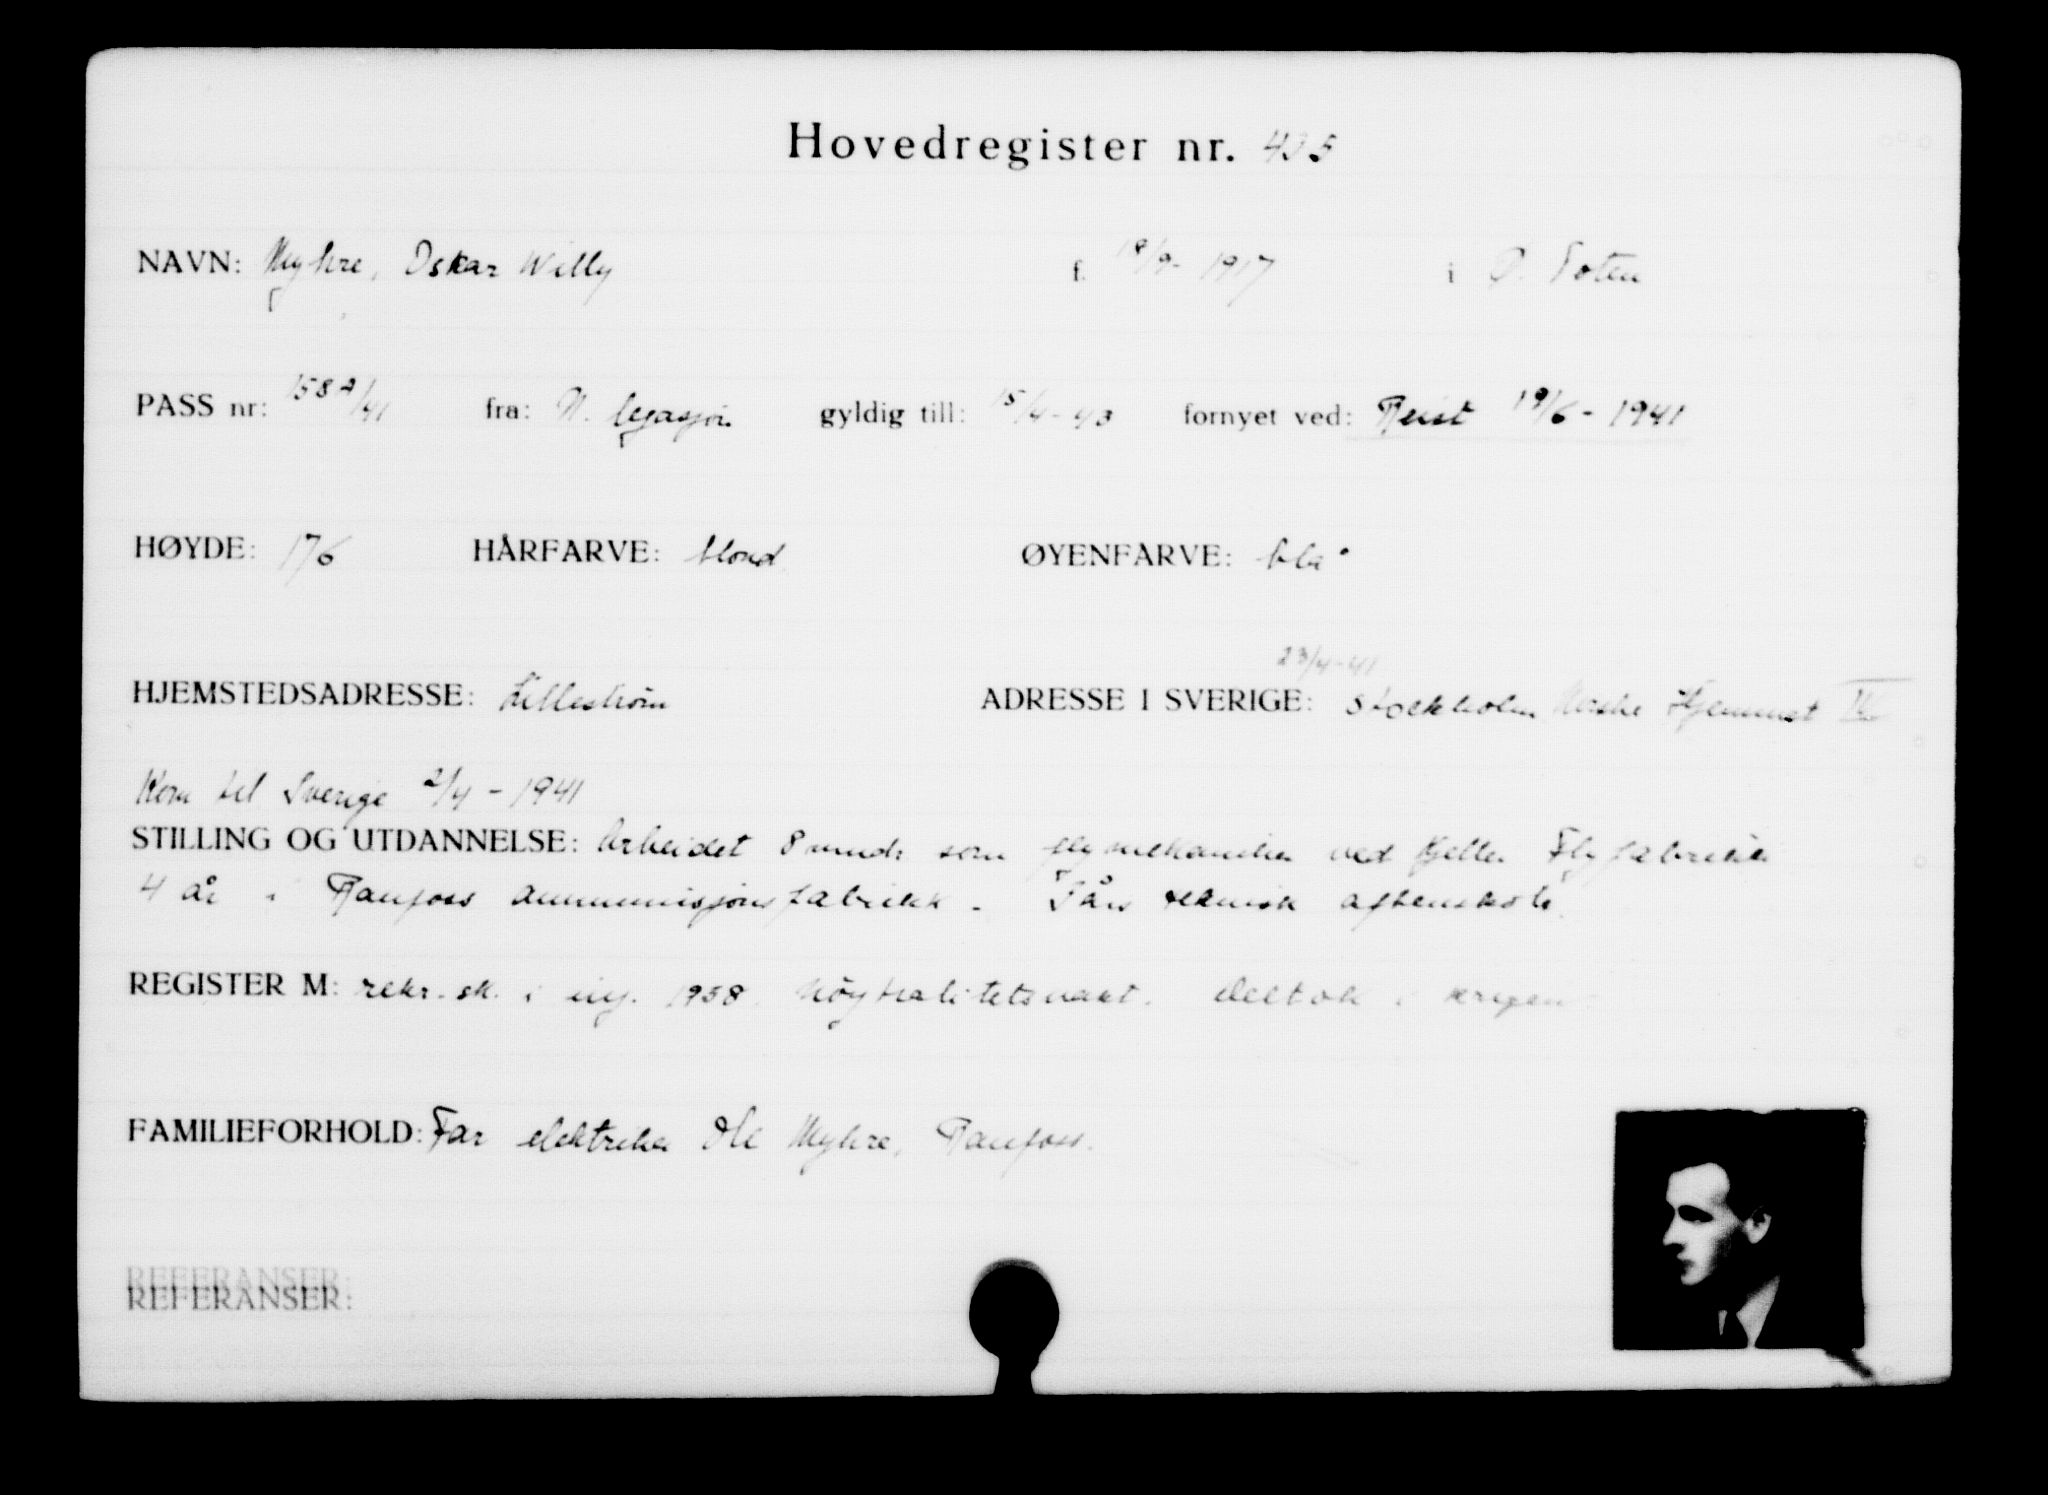 Hovedregister nr. 435
NAVN: Myhre, Oskar Willy f. 18/9- 1917 i Ø. Toten
PASS nr: 1582/41 fra: N. legasjon gyldig till: 15/4-43 fornyet ved: Reist 19/6-1941
HØYDE: 176 HÅRFARVE: blond ØYENFARVE: blå
23/4-41
HJEMSTEDSADRESSE: Lillestrøm ADRESSE I SVERIGE: Stockholm Hjemmet
Kom til Sverige 2/4-1941
STILLING OG UTDANNELSE: Arbeidet 8 mnd. som flymekaniker ved Kjeller Flyfabrikk
4 år i Raufoss ammunisjonsfabrikk - års teknisk aftenskole
REGISTER M: rekr.sk. i ing. 1938. Nøytralitetsvakt. Deltok i krigen
FAMILIEFORHOLD: Far elektriker Ole Myhre, Raufoss.
REFERANSER:
REFERANSER: